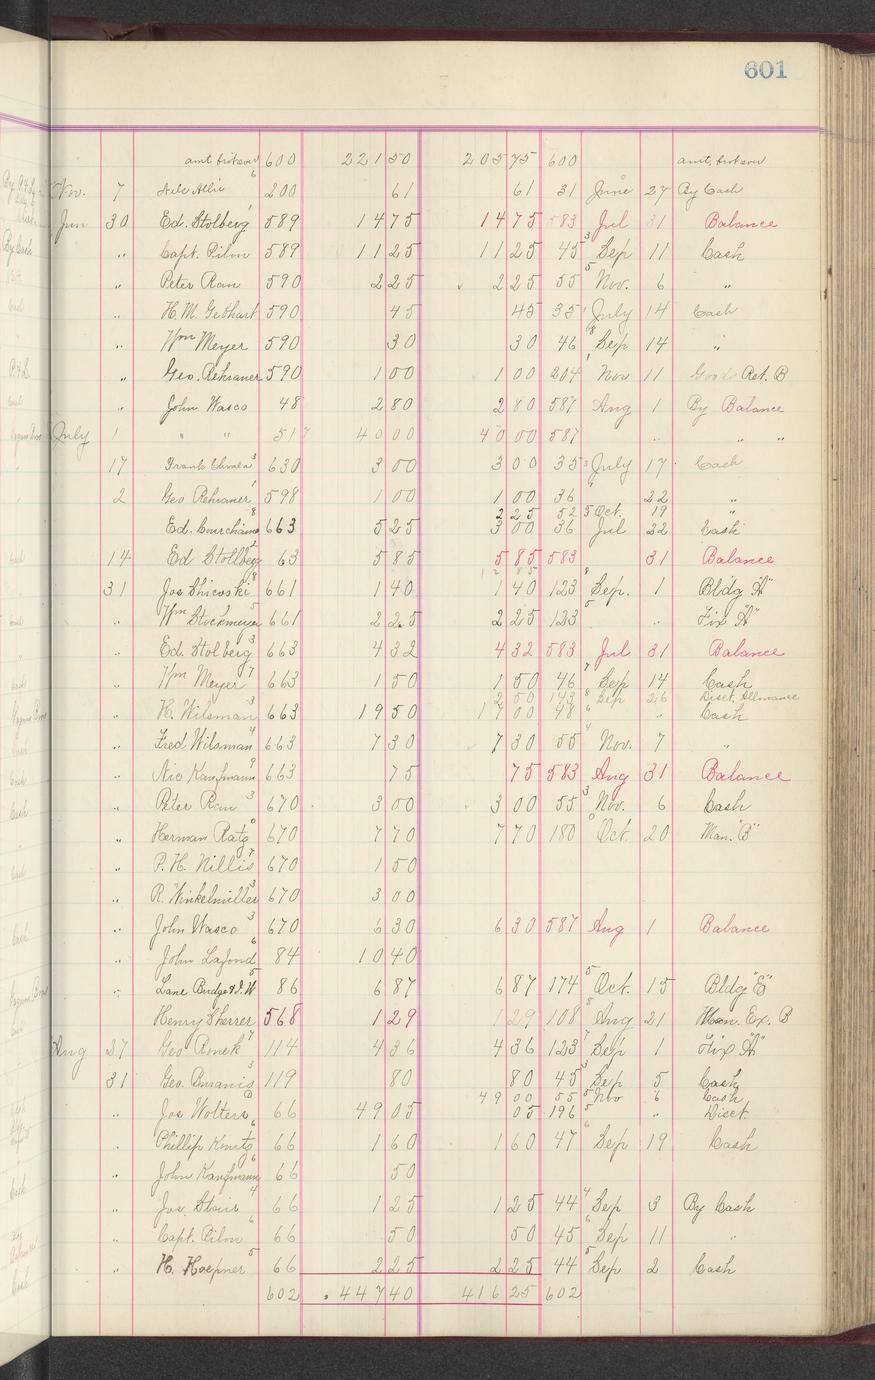 601
amt. brot over 600 221 50 205 75 600 amt. brot over
Nov. 7 200 61 61 31 June 27 By Cash
Jun 30 Ed. Stolberg 589 14 75 14 75 583 Jul 31 Balance
" Capt. Pilon 589 11 25 11 25 45 Sep 11 Cash
" Peter Ran 590 2 25 2 25 55 Nov. 6 "
" H. M. Gebhart 590 45 45 35 July 14 Cash
" Wm Meyer 590 30 30 46 Sep 14 "
" Geo. Rehraner 590 1 00 1 00 204 Nov 11 Goods Ret. B
" John Wasco 48 2 80 2 80 587 Aug 1 By Balance
July 1 " " 517 40 00 40 00 587 " " "
17 Frank 630 3 00 3 00 35 July 17 Cash
2 Geo Rehraner 598 1 00 1 00 36 " 22 "
2 25 52 Oct. 19 "
Ed. 663 5 25 3 00 36 Jul 22 Cash
14 Ed Stollberg 63 5 85 5 85 583 31 Balance
31 Jos Shicoski 661 1 40 1 40 123 Sep. 1 Bldg "A"
" Wm Stockmeyer 661 2 25 2 25 123 " Fix "A"
" Ed. Stolberg 663 4 32 4 32 583 Jul 31 Balance
" Wm Meyer 663 1 50 1 50 46 Sep 14 Cash
2 50 143 Sep 26 Disct. Allowance
" H. Wilsman 663 19 50 17 00 48 " Cash
" Fred Wilsman 663 7 30 7 30 55 Nov. 7 "
" Nic Kaufmann 663 75 75 583 Aug 31 Balance
" Peter Ran 670 3 00 3 00 55 Nov. 6 Cash
" Herman Ratz 670 7 70 7 70 180 Oct. 20 Man. "B"
" P. H. Nillis 670 1 50
" R. Winkelmiller 670 3 00
" John Wasco 670 6 30 6 30 587 Aug 1 Balance
" John Lafond 84 10 40
" Lane Bridge & I. W 86 6 87 6 87 174 Oct. 15 Bldg "E"
Henry Sherrer 568 1 29 1 29 108 Aug 21 Man. Ex. B
Aug 27 Geo 114 4 36 4 36 123 Sep 1 Fix "A"
31 Geo. 119 80 80 45 Sep 5 Cash
49 00 55 Nov 6 Cash
" Jos Wolters 66 49 05 05 196 " Disct.
" Phillip Kuntz 66 1 60 1 60 47 Sep 19 Cash
" John Kaufmann 66 50
" Jos. Stoir 66 1 25 1 25 44 Sep 3 By Cash
" Capt. Pilon 66 50 50 45 Sep 11 "
" H. Hoepner 66 2 25 2 25 44 Sep 2 Cash
602 447 40 416 25 602